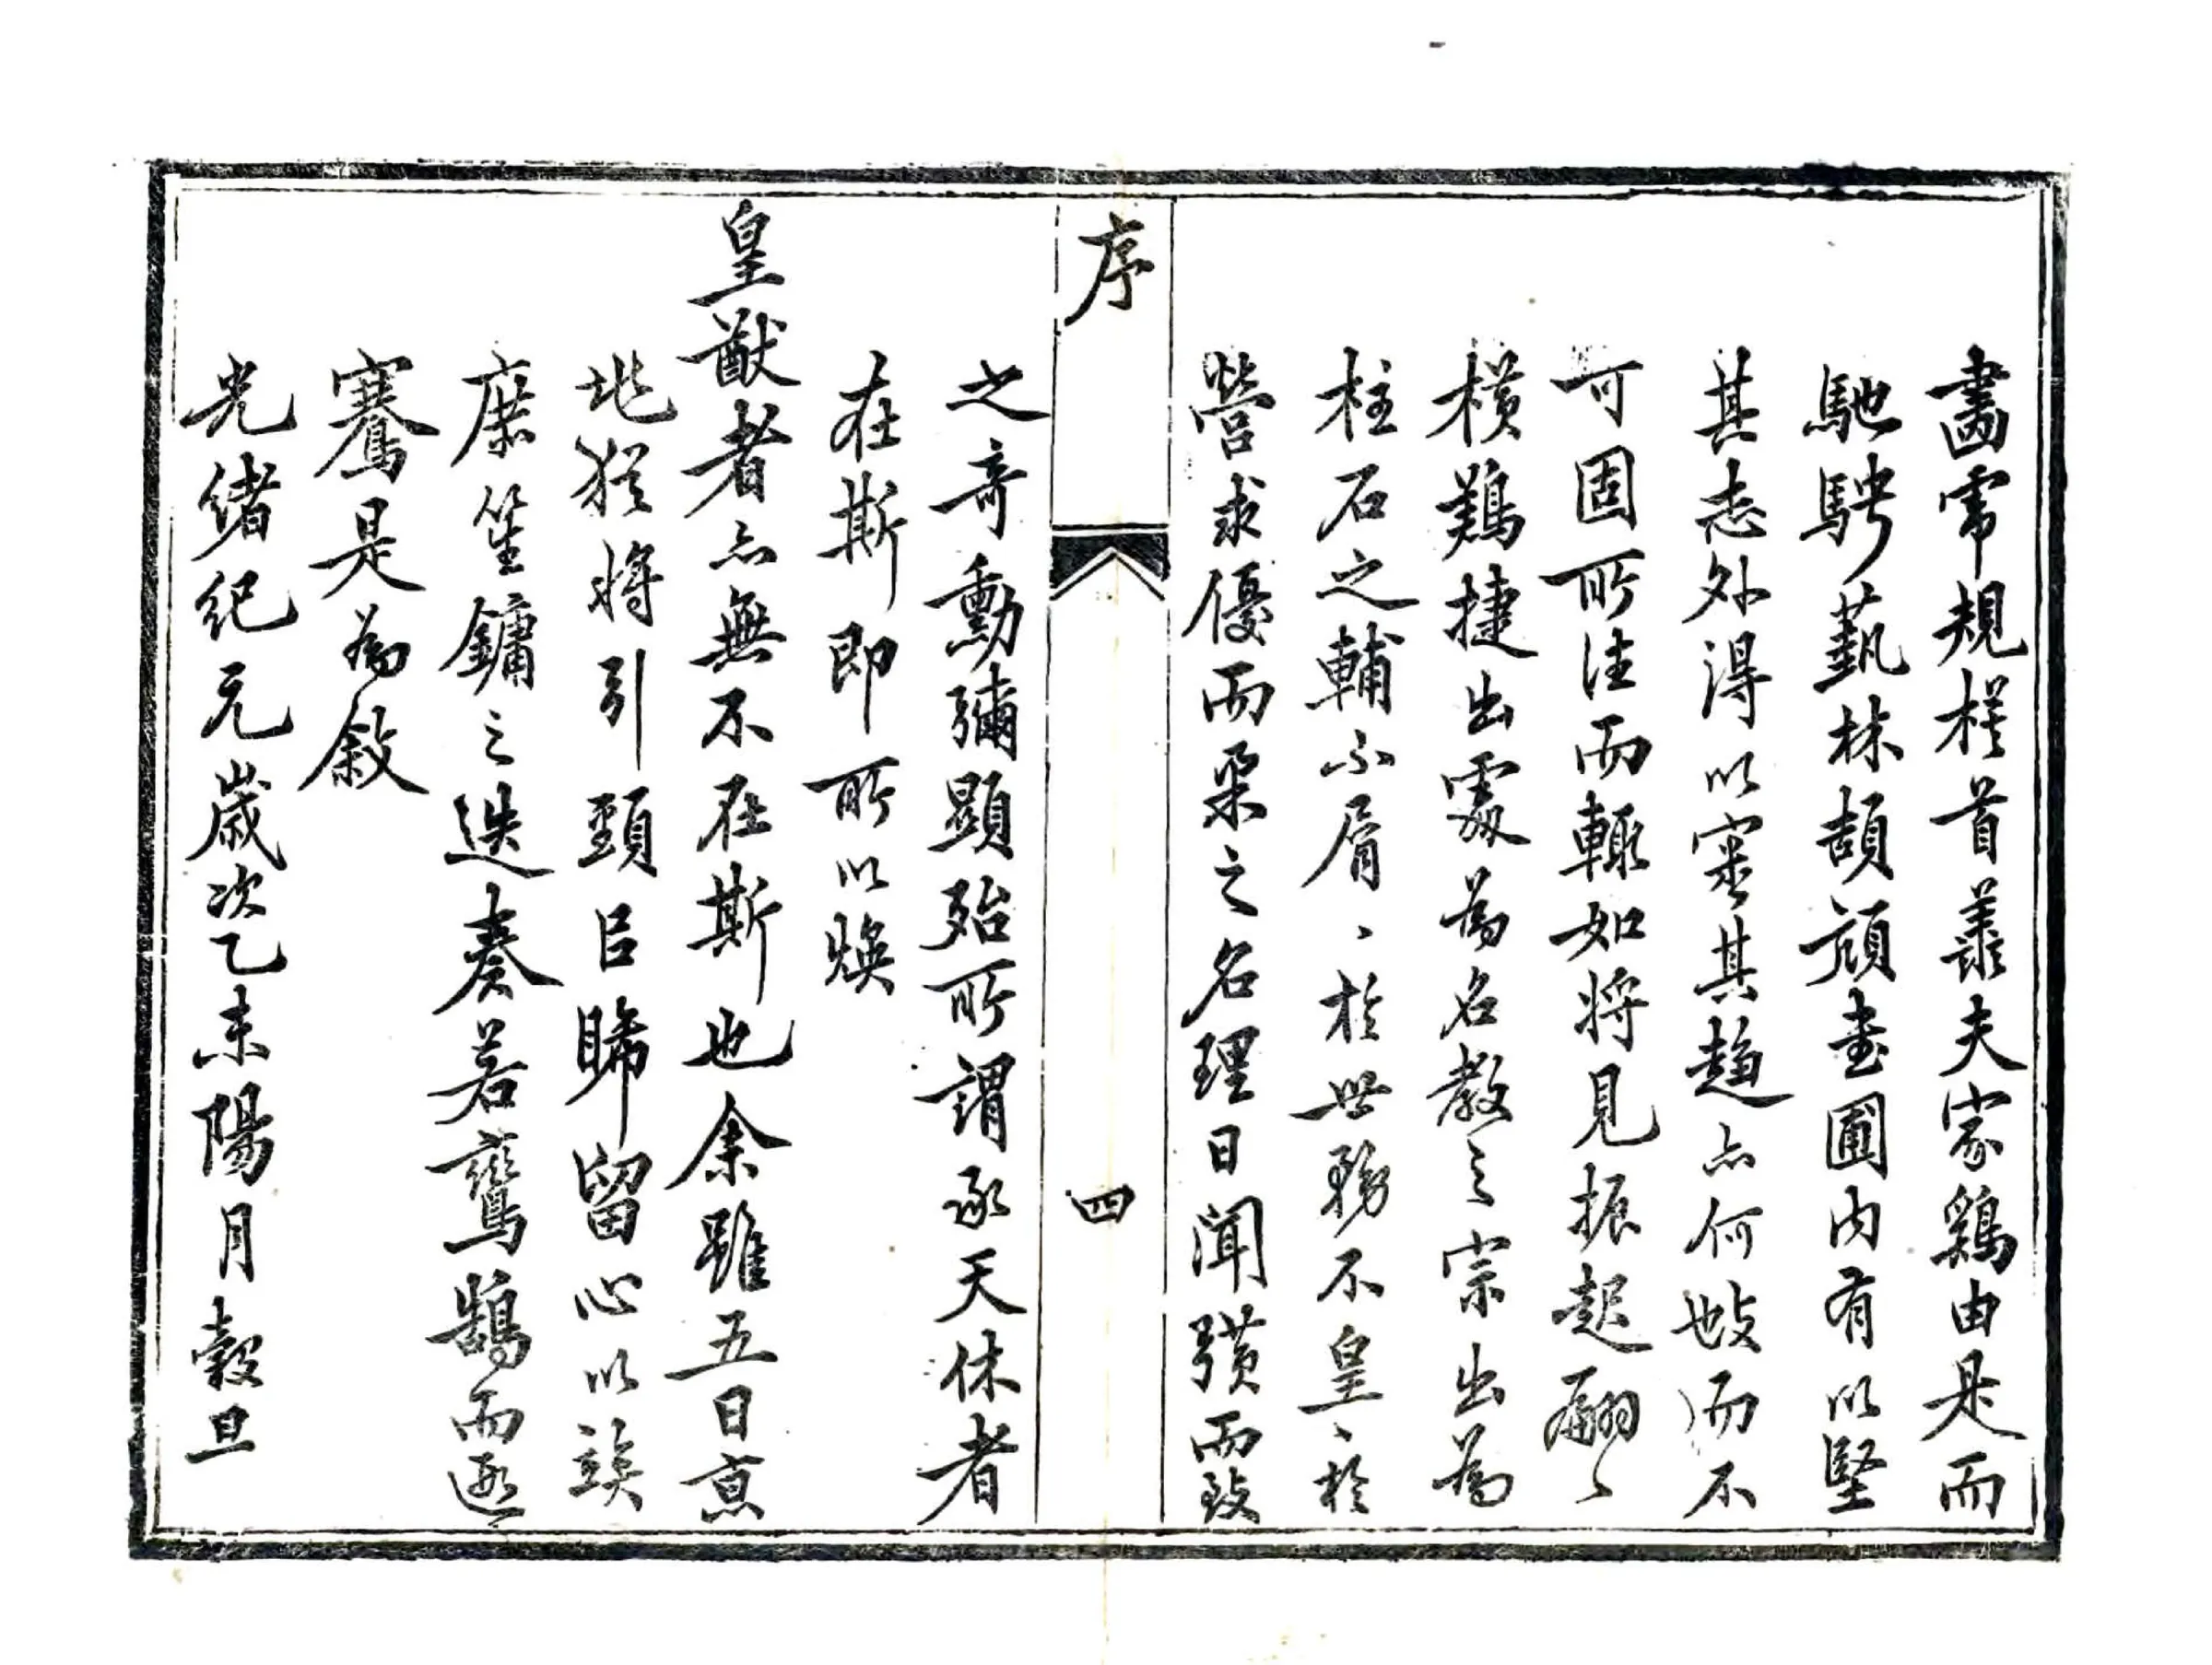 畵常規模首叢夫家鷄由是而
馳騁藝林頡頏書圃内有以堅
其志外得以審其趨亦何㢤而不
可固所往而輙如將見振起翩〻
横鷄捷出處為名教之宗出為
柱石之輔不屑〻於世務不皇〻於
營求優而柔之名理日闻彉而致
序
四
之奇勳彌顯殆所謂承天休者
在斯即所以煥
皇猷者亦無不在斯也余雖五日京
兆猶將引頸臣睎留心以竢
庶笙鏞之迭奏若鸞鵠而遝
騫是為敘
光緒紀元歲次乙未陽月穀旦